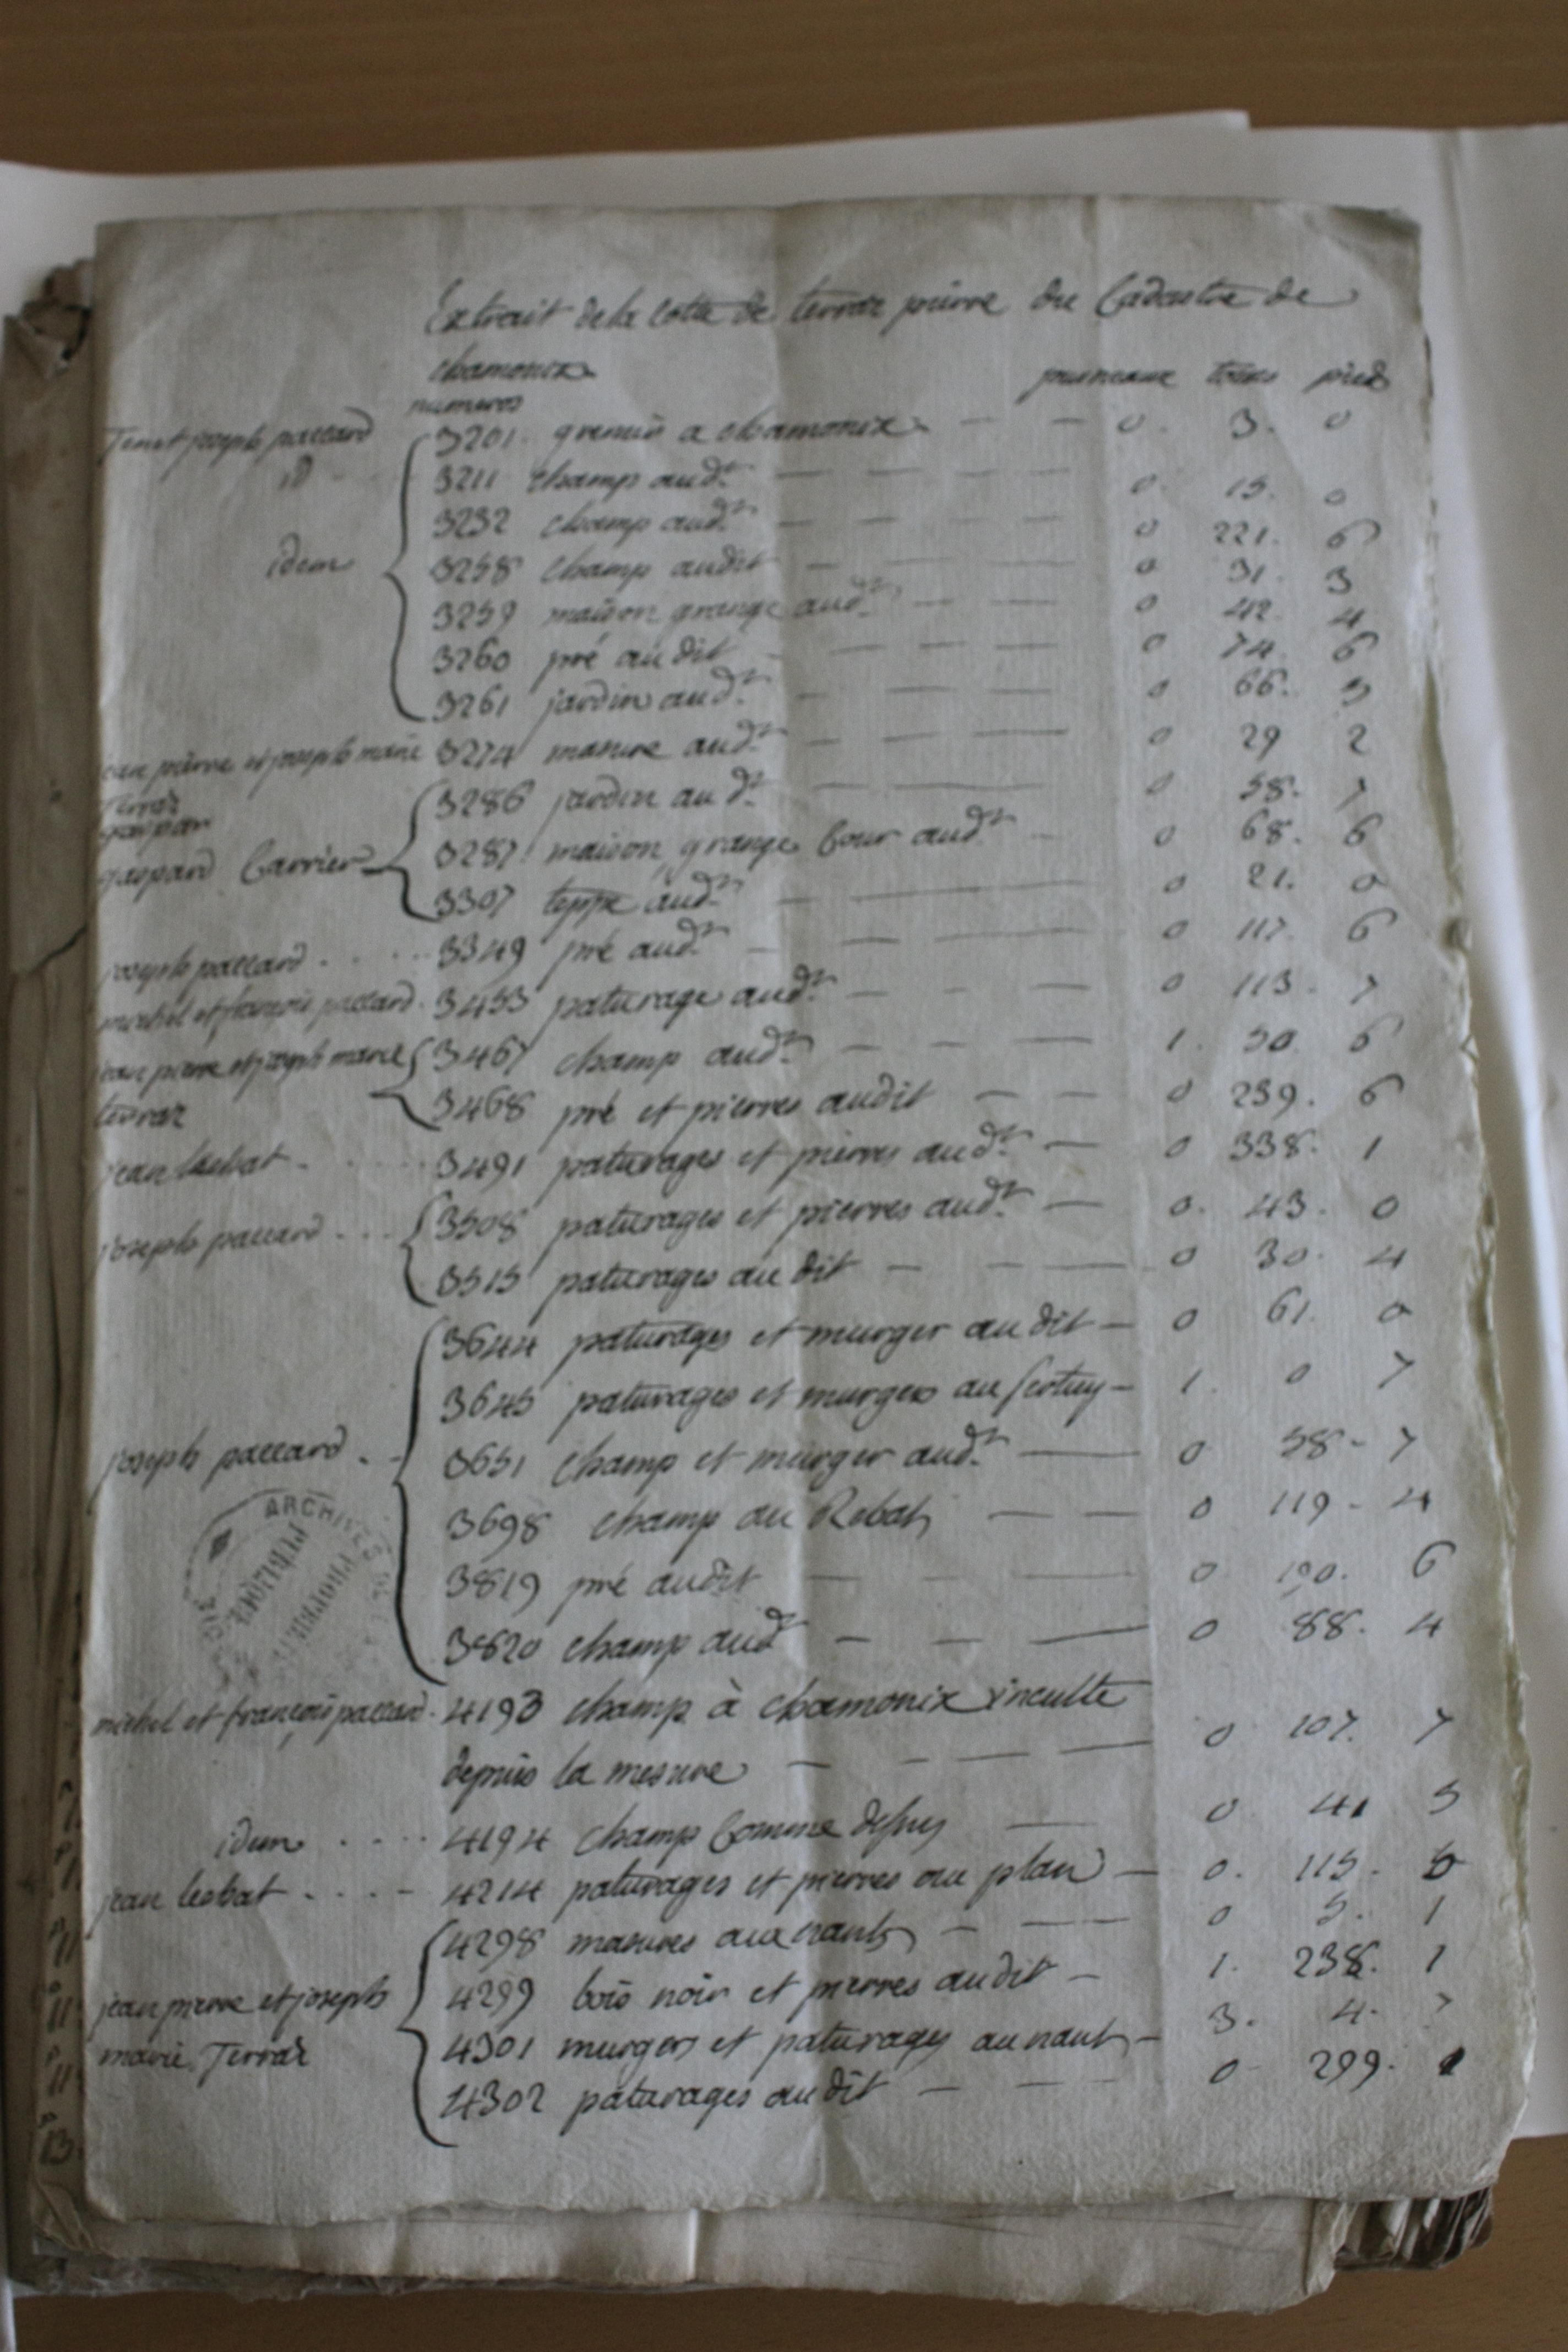 Extrait de la Cotte de terraz pierre du Cadastre de
chamonix
journeaux toises pieds
numeros
joseph paccard 3201 grenier a chamonix 0. 3. 0
id 3211 champ aud.t 0. 15. 0
3232 champ aud.t 0 221. 6
idem 3258 champ audit 0 31. 3
3259 maison grange aud.t 0 42. 4
3260 pré audit 0 74. 6
3261 jardin aud.t 0 66. 5
jean pierre et joseph marie 3274 masure aud.t 0 29 2
Terraz
3286 jardin aud.t 0 58. 7
gaspard Carrier 3287 maison grange Cour aud.t 0 68. 6
3307 teppe aud.t 0 21. 0
joseph paccard 3349 pré aud.t 0 117. 6
michel et françois paccard 3453 paturage aud.t 0 113. 7
jean pierre et joseph marie 3467 champ aud.t 1. 50 6
terraz 3468 pré et pierres audit 0 239. 6
jean lesbat 3491 paturages et pierres aud.t 0 338. 1
joseph paccard 3508 paturages et pierres aud.t 0. 43. 0
3515 paturages au dit 0 30. 4
3644 paturages et murger au dit 0 61. 0
3645 paturages et murgers au 1. 0 7
joseph paccard 3651 champ et murger aud.t 0 58. 7
3698 champ au Rebat 0 119. 4
3819 pré audit 0 190. 6
3820 champ aud.t 0 88. 4
ARCHIVES DE
michel et françois paccard 4193 champ à chamonix inculte
depuis la mesure 0 107. 7
idem 4194 champ Comme dessus 0 41 5
jean lesbat 4214 paturages et pierres au plan 0. 115. 0
4298 masures aux nants 0 5. 1
jean pierre et joseph 4299 bois noir et pierres audit 1. 238. 1
marie Terraz 4301 murgers et paturages au nant 3. 4. 7
4302 paturages audit 0 299. 1